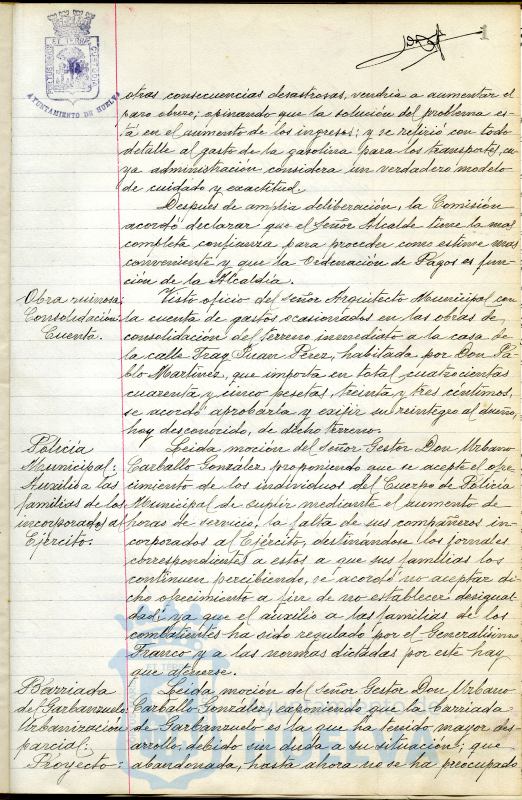 AYUNTAMIENTO DE HUELVA
1
otras consecuencias desastrosas, vendría a aumentar el
paro obrero; opinando que la solución del problema es-
tá en el aumento de los ingresos; y se refirió con todo
detalle al gasto de la gasolina para los transportes, cu-
ya administración considera un verdadero modelo
de cuidado y exactitud.
Despues de amplia deliberación, la Comisión
acordó declarar que el Señor Alcalde tiene la mas
completa confianza para proceder como estime mas
conveniente y que la Ordenación de Pagos es fun-
ción de la Alcaldía.
Obra ruinosa
Consolidación
Cuenta.
Visto oficio del señor Arquitecto Municipal con
la cuenta de gastos ocasionados en las obras de
consolidación del terreno inmediato a la casa de
la calle Fray Juan Pérez, habitada por Don Pa-
blo Martínez, que importa en total cuatrocientas
cuarenta y cinco pesetas, treinta y tres céntimos,
se acordó aprobarla y exijir su reintegro al dueño,
hoy desconocido, de dicho terreno.
Policía
Municipal:
Auxilio a las
familias de los
incorporados al
Ejército.
Leida moción del Señor Gestor Don Urbano
Carballo González, proponiendo que se acepte el ofre-
cimiento de los individuos del Cuerpo de Policía
Municipal de suplir mediante el aumento de
horas de servicio, la falta de sus compañeros in-
corporados al Ejército, destinándose los jornales
correspondientes a estos a que sus familias los
continuen percibiendo, se acordó no aceptar di-
cho ofrecimiento a fin de no establecer desigual-
dad, ya que el auxilio a las familias de los
combatientes ha sido regulado por el Generalísimo
Franco y a las normas dictadas por este hay
que atenerse.
Barriada
del Garbanzuelo
Urbanización
parcial.
Proyecto:
Leida moción del señor Gestor Don Urbano
Carballo González, exponiendo que la barriada
de Garbanzuelo es la que ha tenido mayor des-
arrollo, debido sin duda a su situación; que
abandonada, hasta ahora no se ha preocupado